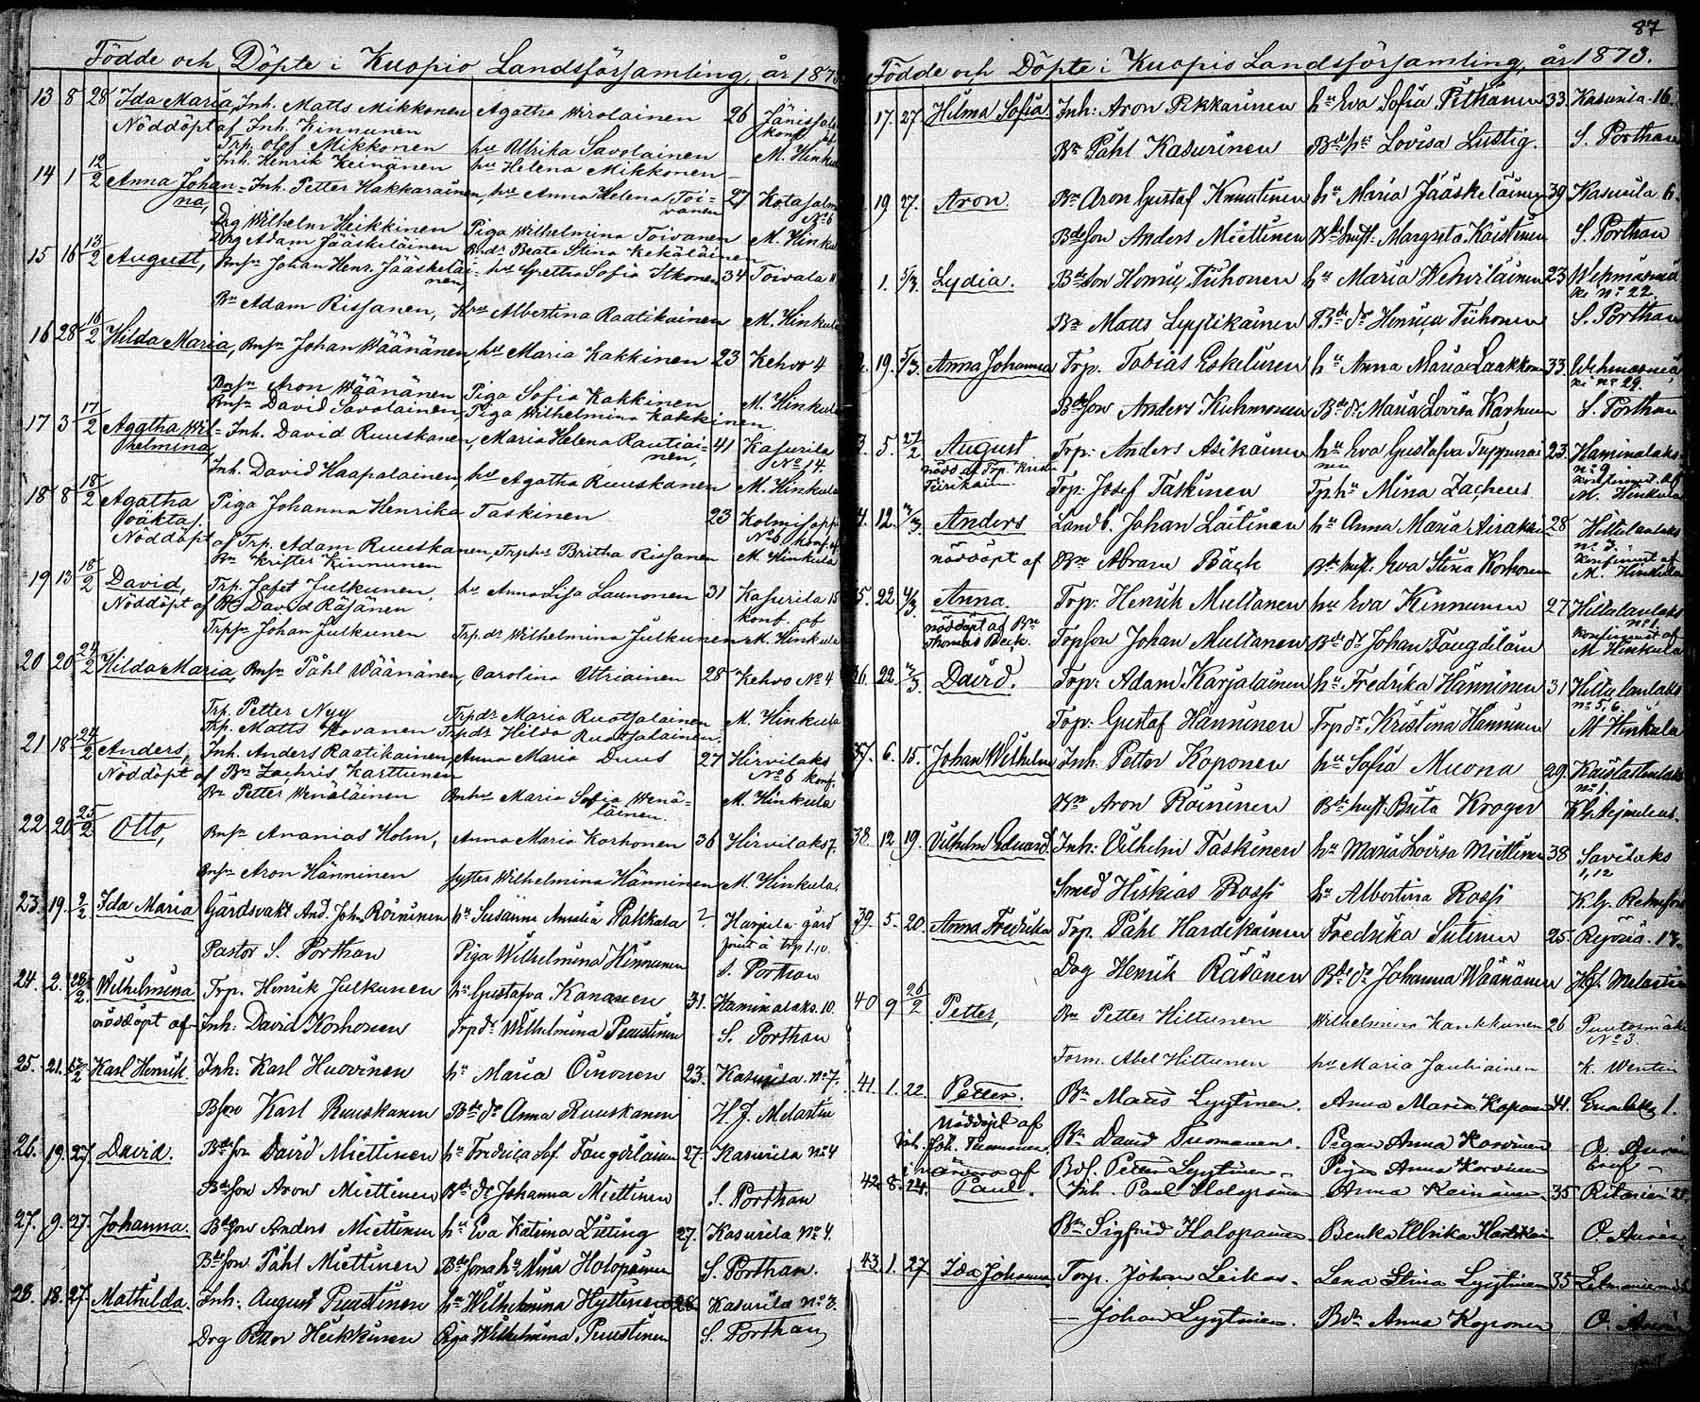 Födde och Döpte i Kuopio Landsförsamling, år 187
13 8 28 Ida Maria, Inh. Matts Mikkonen Agatha Wirolainen 26 Jänissalo
Nöddöpt af Inh. Kinnunen konf.
Trp. Olof Mikkonen hu Ulrika Savolainen M. Hinku
Inh. Henrik Keinänen hu Helena Mikkonen
14 1 12/2 Anna Johan= Inh. Petter Hakkarainen, hu Anna Helena Toi= 27 Kotasalmi
na, vanen No 6
Drg Wilhelm Heikkinen Piga Wilhelmina Toivanen M. Hinku
Drg Adam Jääskeläinen Bndr Beata Stina Kekäläinen
15 16 13/2 August, Bnsn Johan Henr. Jääskeläi= hu Gretha Sofia Itkonen 34 Toivala
nen,
Bn Adam Rissanen, Hu Albertina Raatikainen M. Hinkula
16 28 16/2 Hilda Maria, Bnsn Johan Wäänänen, hu Maria Kakkinen 23 Kehvo 4
Bnsn Aron Wäänänen Piga Sofia Kakkinen M. Hinkula
Bnsn David Savolainen, Piga Wilhelmina Kakkinen.
17 3 17/2 Agatha Wil= Inh. David Ruuskanen, Maria Helena Rautiai= 41 Kasurila
helmina, nen, No 14.
Inh. David Haapalainen hu Agatha Ruuskanen M. Hinkula
18 8 18/2 Agatha Piga Johanna Henrika Taskinen 23 Kolmisopp
oäkta. No 6 konf. af
Nöddöpt af Trp. Adam Ruuskanen, Trphu Britha Rissanen M. Hinkula
Bn Krister Kinnunen
19 13 18/2 David, Trp. Jafet Julkunen, hu Anna Lisa Launonen 31 Kasurila 15
Nöddöpt af Bn David Räsänen konf. af
Trpsn Johan Julkunen Trp.dr Wilhelmina Julkunen M. Hinkula
20 20 24/2 Hilda Maria, Bnsn Påhl Wäänänen, Carolina Uttriainen 28 Kehvo No 4
Trp. Petter Nyy Trpdr Maria Ruotsalainen M. Hinkula
Trp. Matts Hovanen Trpdr Hilda Ruotsalainen.
21 18 24/2 Anders, Inh. Anders Raatikainen Anna Maria Duus 27 Hirvilaks
Nöddöpt af Bn Zachris Karttunen No 6 konf.
Bn Petter Wenäläinen Bnhu Maria Sofia Wenä= M. Hinkula
läinen.
22 20 25/2 Otto, Bnsn Ananias Holm, Anna Maria Korhonen 36 Hirvilaks 7.
Bnsn Aron Hänninen Syster Wilhelmina Hänninen M. Hinkula.
23. 19. 9/2 Ida Maria Gårdsvakt And. Joh. Röininen hu Susanna Amalia Pahkala ? Harjula gård
Pastor S. Porthan Piga Wilhelmina Kinnunen S. Porthan
24. 2. Wilhelmina Trp. Henrik Julkunen hu Gustafva Kananen 31. Haminalaks 10.
nöddöpt af Inh: David Korhonen Trp dr Wilhelmina Puustinen S. Porthan
25. 21. Karl Henrik. Inh: Karl Huovinen hu Maria Oinonen 23. Kasurila No 7.
Bson Karl Ruuskanen Bde dr Anna Ruuskanen H. J. Melartin
26. 19. 27. David. Bdeson David Miettinen hu Fredrica Sof. Faugdilainen 27. Kasurila No 4
Bdeson Aron Miettinen Bde dr Johanna Miettinen S. Porthan
27. 9. 27. Johanna. Bdeson Anders Miettinen hu Eva Katrina Lüting 27. Kasurila No 4.
Bdeson Påhl Miettinen Bdesona hu Mina Holopainen S. Porthan.
28. 18. 27. Mathilda. Inh: August Puustinen hu Wilhelmina Hyttinen 28 Kasurila No 3.
Drg Petter Heikkinen Piga Wilhelmina Puustinen S. Porthan
87
Födde och Döpte i Kuopio Landsförsamling, år 1873.
17. 27. Hilma Sofia. Inh: Aron Pekkarinen hu Eva Sofia Pitkänen 33. Kasurila 16.
Bn Påhl Kasurinen Bdehu Lovisa Lustig. S. Porthan
19 27. Aron. Bn Aron Gustaf Knuutinen hu Maria Jääskeläinen 39 Kasurila 6.
Bdeson Anders Miettinen Bdehust: Margreta Kaistinen S. Porthan
1. 5/3. Lydia. Bdeson Henric Tiihonen hu Maria Wehviläinen 23 Wehmasmä
ki No 22.
Bn Matts Lyytikäinen Bde dr Henrica Tiihonen S. Porthan
19. 5/3. Anna Johanna Trp. Tobias Eskelinen hu Anna Maria Laakkonen 33. Wehmasmä
ki No 29.
Bdeson Anders Kuhmonen Bde dr Maria Lovisa Karhunen S. Porthan
5. 27/2 August Trp: Anders Asikainen hu Eva Gustafva Tuppurai 23. Haminalaks
nöds af Trp. Krist. nen No 9
Tirikain. Trp: Josef Taskinen Trphu Mina Zacheus konfirmerat af
M. Hinkula
12. Anders Landb. Johan Laitinen hu Anna Maria Airaksi 28 Hiltulanlaks
nöddöpt af Bn Abram Bäck Bdehust. Eva Stina Korhonen konfirmerat af
M. Hinkula
5. 22 4/3 Anna. Trp: Henrik Multanen hu Eva Kinnunen 27 Hiltulanlaks
nöddöpt af Bn No 1.
Thomas Beck. Trpson Johan Multanen Bde dr Johan Faugdilain konfirmerat af
M Hinkula
36. 22. David. Trp: Adam Karjalainen hu Fredrika Hänninen 31 Hiltulanlaks
No 5, 6.
Trp: Gustaf Hänninen Trp dr Kristina Hänninen M Hinkula
37. 6. 15. Johan Wilhelm Inh: Petter Koponen hu Sofia Muona 29. Kaistastenlaks
No 1.
Bn Aron Röininen Bdehust. Brita Kroger
38. 12 19. Vilhelm Eduard. Inh: Vilhelm Taskinen hu Maria Lovisa Miettinen 38 Savilaks
1,12
Smed Hiskias Rossi hu Albertina Rossi K. G.
39. 5. 20. Anna Fredrika Trp. Påhl Hardikainen Fredrika Sutinen 25. Ryönä. 17.
Dog Henrik Räsänen Bde dr Johanna Wäänänen H. J. Melartin
40 9 26/2 Petter, Bn Petter Hiltunen Wilhelmina Kaukkunen 26 Puutosmäki
No 3.
Form. Abel Hiltunen hu Maria Jauhiainen K. Wentin
41. 1. 22. Petter. Bn Matts Lyytinen. Anna Maria Koponen 41.
Nöddöpt af
Joh. Tuomonen. Bn David Tuomanen. Pigan Anna Korvinen O.
Bds. Petter Lyytinen Pigan Anna Korvinen
42 8. 24. Paul. Inh. Paul Holopainen Anna Keinänen 35
Bn Sigfrid Holopainen Benka Ulrika O.
43. 1. 27. Ida Johanna Torp. Johan Leikas Lena Stina Lyytinen 35
Johan Lyytinen. Bdr Anna Koponen O.